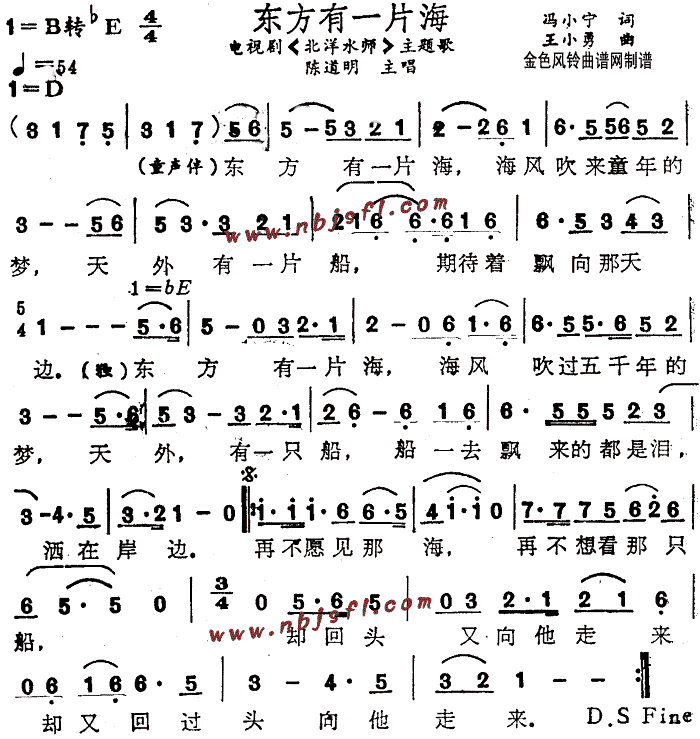 东方有一片海
1=B转♭E 4/4
♩=54
电视剧《北洋水师》主题歌
陈道明 主唱
冯小宁 词
王小勇 曲
金色风铃曲谱网制谱
1=D
(3 1 7 5 | 3 1 7) 5 6 | 5 - 5 3 2 1 | 2 - 2 6 1 | 6· 5 5 6 5 2 |
(童声伴)东 方 有一片 海, 海风吹来童年的
3 - - 5 6 | 5 3· 3 2 1 | 2 1 6 6· 6 1 6 | 6· 5 3 4 3 |
www.nbjsfl.com
梦, 天 外 有一片 船, 期待着 飘向那天
1=bE
5/4 1 - - - 5·6 | 5 - 0 3 2·1 | 2 - 0 6 1·6 | 6· 5 5·6 5 2 |
边.(独)东 方 有一片海, 海风 吹过五千年的
3 - - 5·6 | 5 3 - 3 2·1 | 2 6 - 6 1 6 | 6· 5 5 5 2 3 |
梦, 天 外, 有一只 船, 船一去飘 来的都是泪,
3 - 4· 5 | 3·2 1 - 0 | i· i i· 6 6·5 | 4 i· i 0 | 7· 7 7 5 6 2 6 |
洒在岸边. 再不愿见那 海, 再不想看那只
6 5· 5 0 | 3/4 0 5·6 5 | 0 3 2·1 2 1 6 |
www.nbjsfl.com
船, 却回头 又向他走 来
0 6 1 6 6· 5 | 3 - 4· 5 | 3 2 1 - - :|
却又回过 头 向他 走 来. D.S Fine